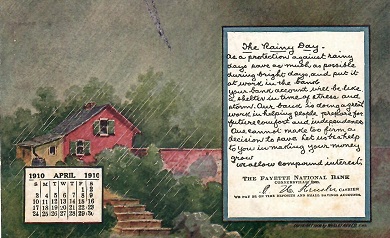 The Rainy Day.
As a protection against rainy
days save as much as possible
during bright days, and put it
at work in the bank
your bank account will be like
a shelter in time of stress and
storm. Our bank is doing a great
work in helping people prepare for
future comfort and independence
One cannot make too firm a
decision to have her sister help
to you in making your money
grow
We allow compound interest.
THE FAYETTE NATIONAL BANK
CONNERSVILLE, IND.
CASHIER
WE PAY 3% ON TIME DEPOSITS AND SMALL SAVINGS ACCOUNTS.
1910 APRIL 1910
S M T W T F S
1 2
3 4 5 6 7 8 9
10 11 12 13 14 15 16
17 18 19 20 21 22 23
24 25 26 27 28 29 30